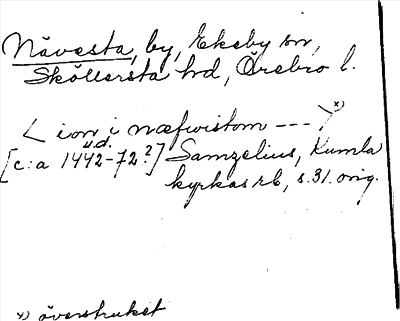 Nävesta, by, Ekeby sn,
Sköllersta hd, Örebro l.
< ion i næfwistom --- >x)
u.d.
[c:a 1442-72?] Samzelius, Kumla
kyrkas rb, s. 31. orig.
x) överstruket